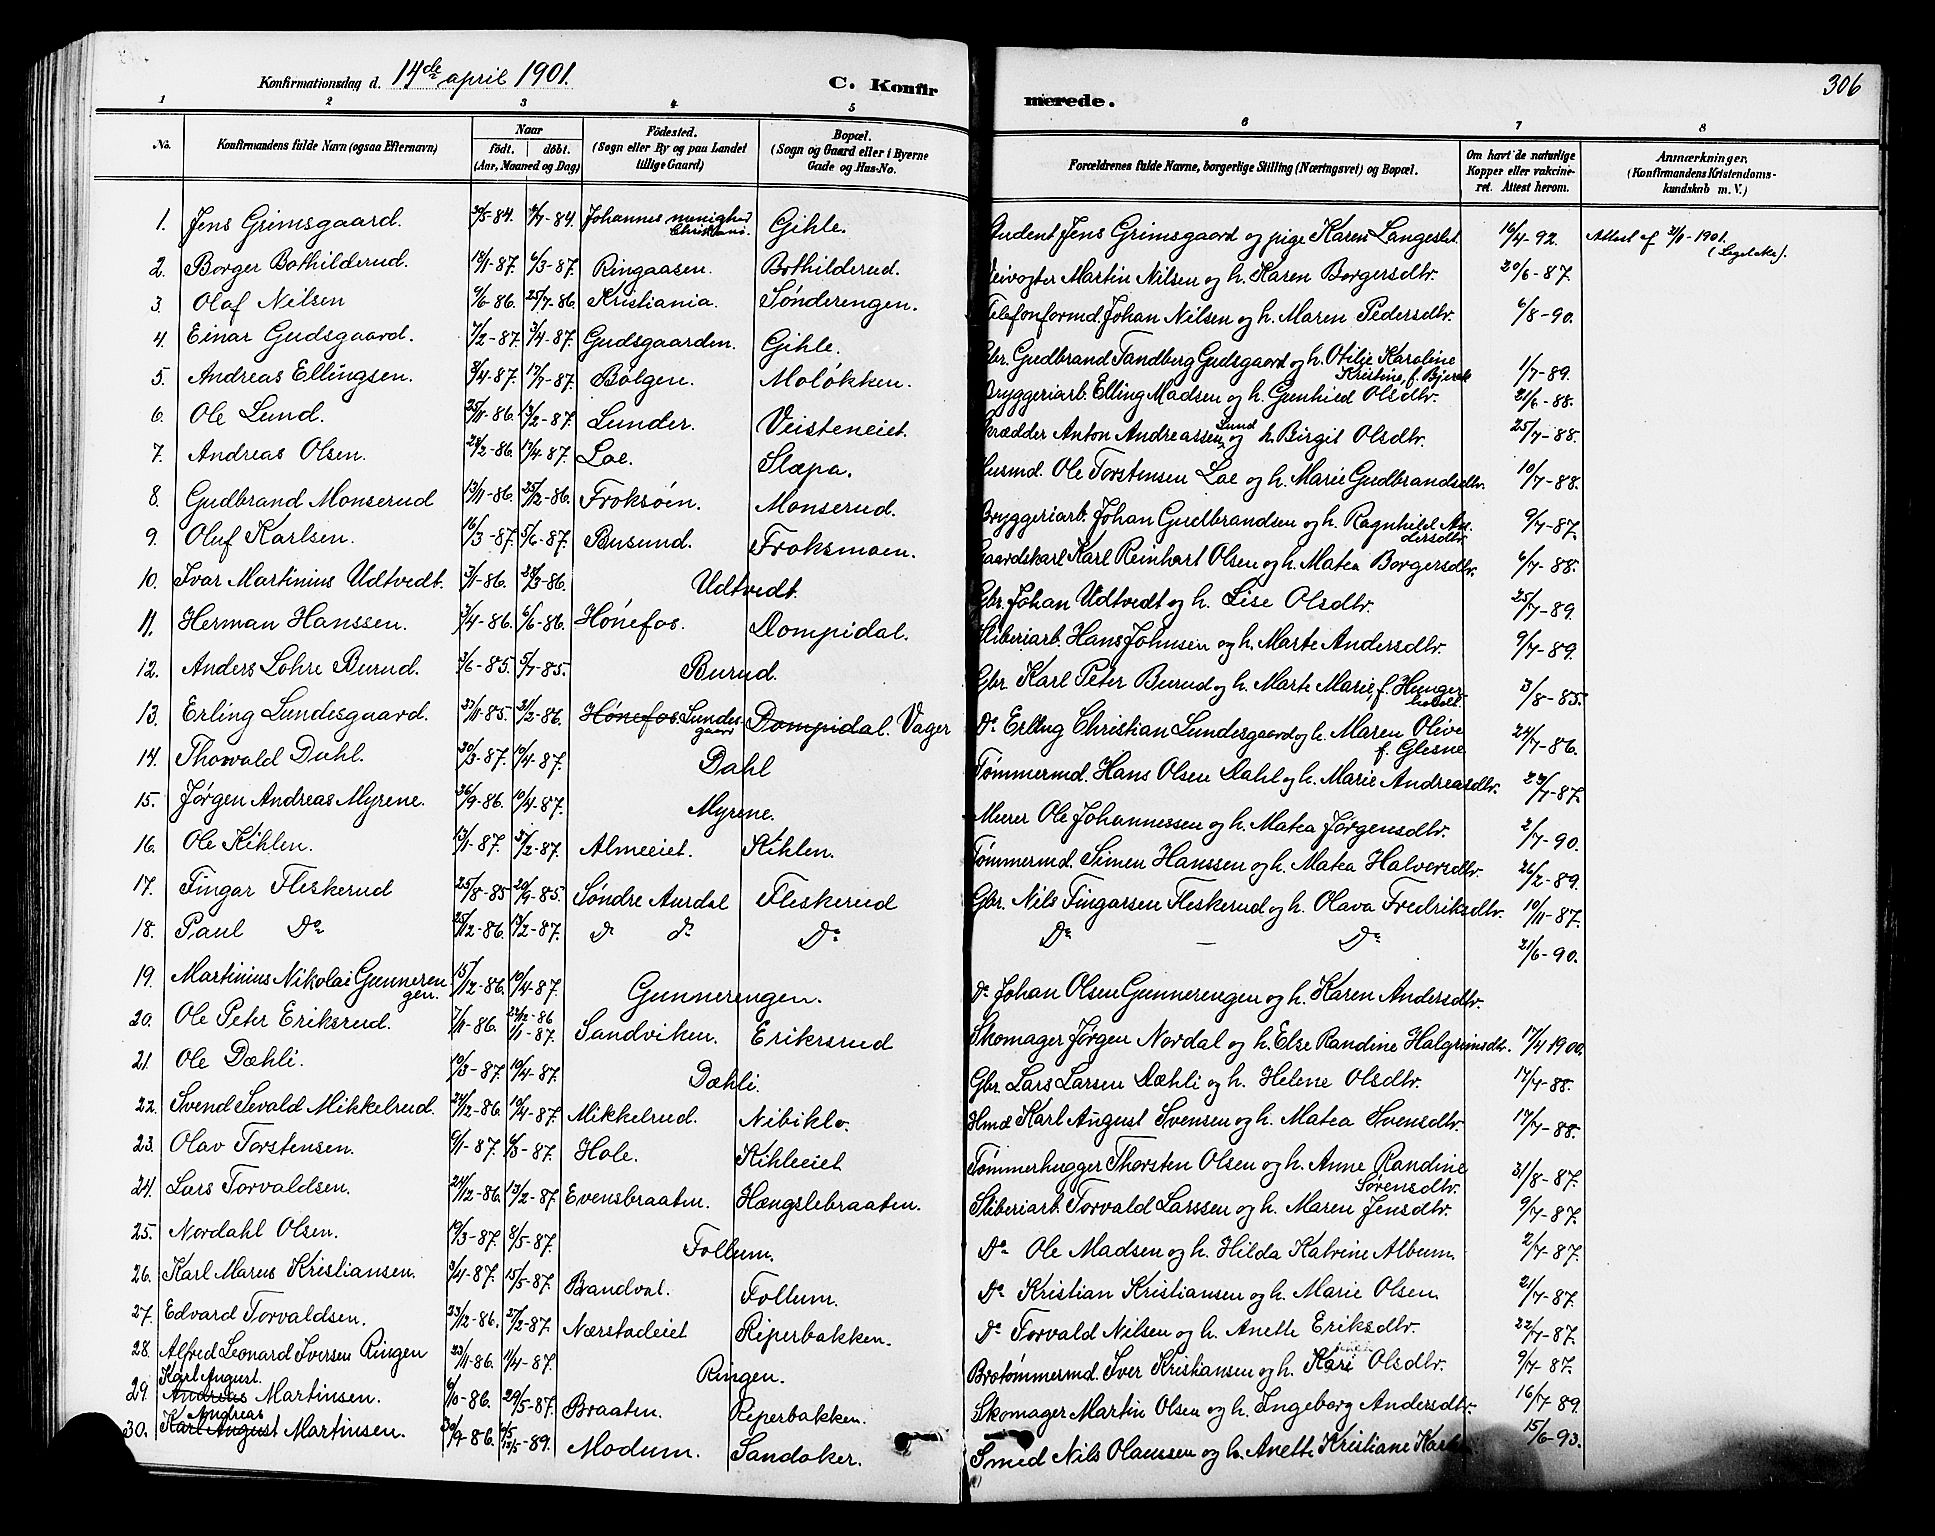 306
Konfirmationsdag d. 14de april 1901.
C. Konfirmerede.
1 2 3 4 5 6 7 8
No. Konfirmandens fulde Navn (ogsaa Efternavn) Naar født. døbt. (Aar, Maaned og Dag) Födested. (Sogn eller By og paa Landet tillige Gaard) Bopæl. (Sogn og Gaard eller i Byerne Gade og Hus-No. Forældrenes fulde Navne, borgerlige Stilling (Næringsvei) og Bopæl. Om havt de naturlige Kopper eller vaccineret. Attest herom. Anmærkninger, (Konfirmandens Kristendomskundskab m. V.)
1. Jens Grimsgaard. 30/5-84. 6/7-84. Johannes menighed Christiania. Gihle. Student Jens Grimsgaard og pige Karen Langeslet. 16/4-92. Attest af 21/1-1901.
2. Borger Bothilderud. 13/1-87. 6/3-87. Ringaasen. Bothilderud. Veivogter Martin Nilsen og h. Karen Borgersdtr. 20/6-87.
3. Olaf Nilsen 9/6-86. 25/7-86. Kristiania. Sønderengen. Telefonformd. Johan Nilsen og h. Maren Pedersdtr. 6/8-90.
4. Einar Gudsgaard. 7/2-87. 3/4-87. Gudsgaarden. Gihle. Gbr. Gudbrand Tandberg Gudsgaard og h. Otilie Karoline Kristine, f. Bjerke 1/7-89.
5. Andreas Ellingsen. 3/4-87. 17/7-87. Bølgen. Moløkken. Bryggeriarb. Elling Madsen og h. Gunhild Olsdtr. 21/6-88.
6. Ole Lund. 25/11-86. 13/2-87. Lunder. Veisteneiet. Skrædder Anton Andreassen Lund og h. Birgit Olsdtr. 25/7-88.
7. Andreas Olsen. 24/2-86. 17/4-87. Loe. Slæpa. Husmd. Ole Torstensen Loe og h. Marie Gudbrandsdtr. 10/7-88.
8. Gudbrand Monserud 13/11-86. 25/2-86. Froksøin. Monserud. Bryggeriarb. Johan Gudbrandsen og h. Ragnhild Andersdtr. 9/7-87.
9. Oluf Karlsen. 16/3-87. 5/6-87. Busund. Froksmoen. Gaardskarl Karl Reinhart Olsen og h. Matea Borgersdtr. 6/7-88.
10. Ivar Martinius Udtvedt. 3/1-86. 28/3-86. Udtvedt. Gbr. Johan Udtvedt og h. Lise Olsdtr. 25/7-89.
11. Herman Hanssen. 3/4-86. 6/6-86. Hønefos. Dompidal. Sliberiarb. Hans Johnsen og h. Marte Andersdtr. 9/7-89.
12. Anders Lohre Burud. 3/6-85. 5/7-85. Burud. Gbr. Karl Peter Burud og h. Marte Marie, f. Hungerholdt. 3/8-85.
13. Erling Lundesgaard. 27/11-85. 21/2-86. Hønefos Lundesgaard Dompidal. Vager Do Erling Christian Lundesgaard og h. Maren Olive f. Glesne 24/7-86.
14. Thorvald Dahl. 30/3-87. 10/4-87. Dahl Tømmermd. Hans Olsen Dahl og h. Marie Andreasdtr. 22/7-87.
15. Jørgen Andreas Myrene. 26/9-86. 10/4-87. Myrene. Murer Ole Johannessen og h. Matea Jørgensdtr. 2/7-90.
16. Ole Kihlen. 13/1-87. 27/2-87. Almeeiet. Kihlen. Tømmermd. Simen Hanssen og h. Matea Halvorsdtr. 26/2-89.
17. Fingar Fleskerud 25/8-85 20/9-85. Søndre Aurdal Fleskerud Gbr. Nils Fingarsen Fleskerud og h. Olava Fredriksdtr. 10/11-87.
18. Paul Do 25/12-86. 13/2-87. Do Do Do Do — Do 21/6-90.
19. Martinius Nikolai Gunnerengen. 15/12-86. 10/4-87. Gunnerengen. Do Johan Olsen Gunnerengen og h. Karen Andersdtr.
20. Ole Peter Eriksrud. 7/11-86. 28/12-86 1/11-87. Sandviken. Eriksrud Skomager Jørgen Nordal og h. Else Randine Halgrimsdtr. 17/4 1900.
21. Ole Dæhli. 10/3-87. 10/4-87. Dæhli. Gbr. Lars Larsen Dæhli og h. Helene Olsdtr. 17/7-88.
22. Svend Sevald Mikkelrud. 24/12-86. 10/4-87. Mikkelrud. Nibiklo. Hmd Karl August Svensen og h. Matea Svensdtr. 17/7-88.
23. Olav Torstensen. 9/1-87. 6/3-87. Hole. Kihleeiet Tømmerhugger Thorsten Olsen og h. Anne Randine Sørensdtr. 31/8-87.
24. Lars Torvaldsen. 24/12-86. 13/2-87. Evensbraaten. Hængslebraaten. Sliberiarb. Torvald Larssen og h. Maren Jensdtr. 9/7-87.
25. Nordahl Olsen. 19/3-87. 8/5-87. Follum. Do Ole Madsen og h. Hilda Katrine Album. 2/7-87.
26. Karl Marus Kristiansen. 3/4-87. 15/5-87. Brandval. Follum. Do Kristian Kristiansen og h. Marie Olsen. 21/7-87.
27. Edvard Torvaldsen. 23/12-86. 27/2-87. Nærstadeiet Piperbakken. Do Torvald Nilsen og h. Anette Eriksdtr. 22/7-87.
28. Alfred Leonard Iversen Ringen 23/11-86. 11/4-87. Ringen. Brotømmermd. Iver Kristiansen og h. Kari Olsdtr. 9/7-87.
29. Karl August. Andreas Martinsen. 6/10-86. 29/5-87. Braaten. Piperbakken. Skomager Martin Olsen og h. Ingeborg Andersdtr. 16/7-89.
30. Andreas Karl August Martinsen. 30/9-86. 12/5-89. Modum. Sandaker. Smed Nils Olaussen og h. Anette Kristiane 15/6-93.